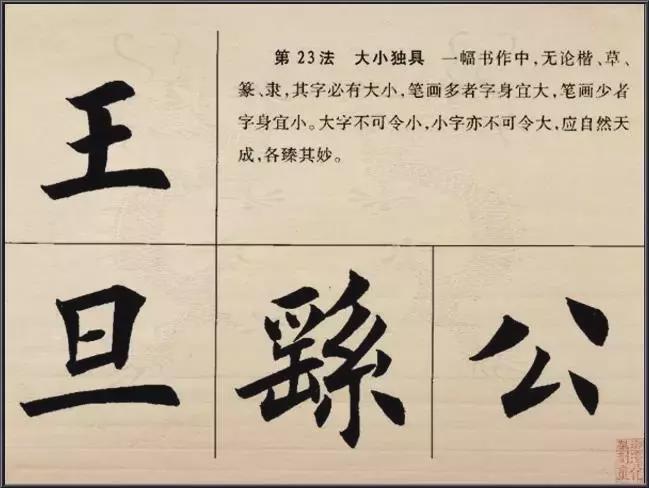 第23法 大小独具 一幅书作中,无论楷、草、
篆、隶,其字必有大小,笔画多者字身宜大,笔画少者
字身宜小。大字不可令小,小字亦不可令大,应自然天
成,各臻其妙。
王
旦
繇
公